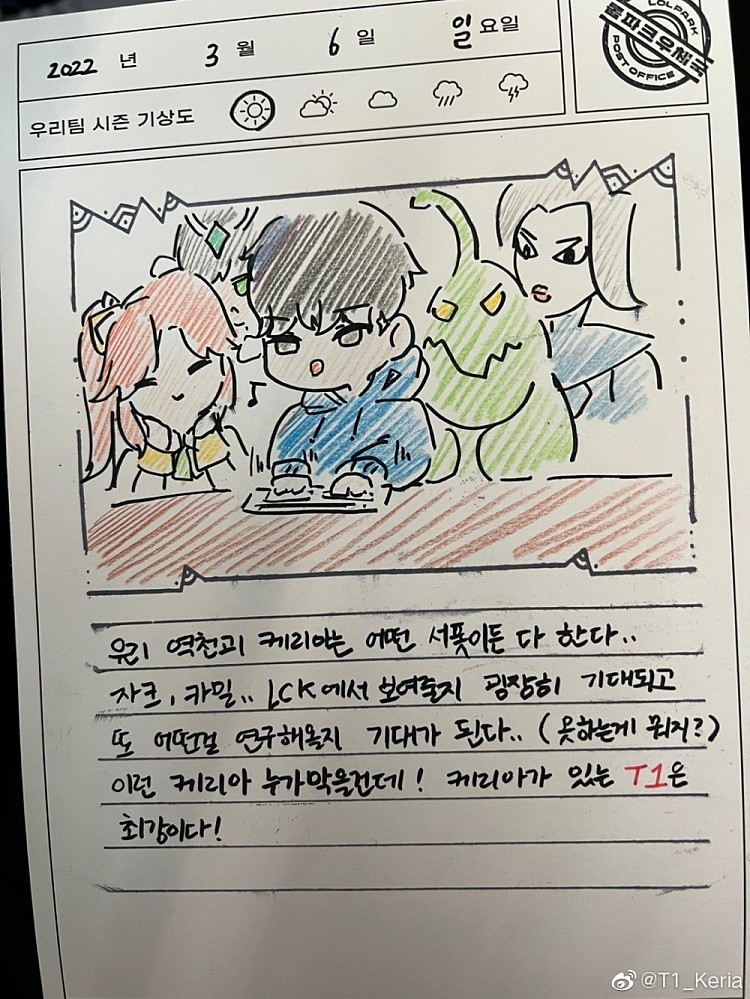 2022 년 3 월 6 일 일 요일
LOLPARK
롤파크우체국
POST OFFICE
우리팀 시즌 기상도
우리 역천괴 케리아는 어떤 서폿이든 다 한다..
자크, 카밀.. LCK에서 보여줄지 굉장히 기대되고
또 어떤걸 연구해올지 기대가 된다.. (못하는게 뭐지?)
이런 케리아 누가막을건데! 케리아가 있는 T1은
최강이다!
@T1_Keria